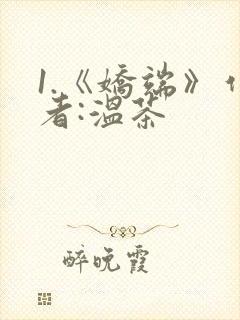 1.《嬌端》
者:溫茶
醉晚霞